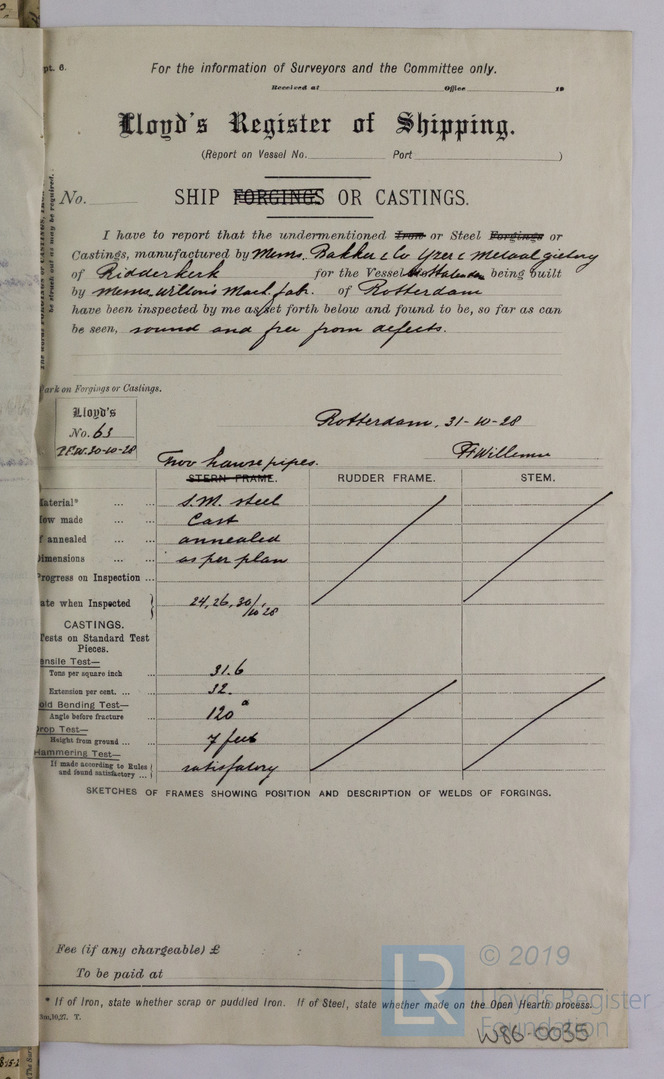 pt. 6.
For the information of Surveyors and the Committee only.
Received at Office 19
Lloyd's Register of Shipping.
(Report on Vessel No. Port )
No.
SHIP FORGINGS OR CASTINGS.
I have to report that the undermentioned Iron or Steel Forgings or
Castings, manufactured by Messrs. Bakker & Co Yzer & Metaalgietery
of Ridderkerk for the Vessel being built
by Messrs Wilton's Mach. fab. of Rotterdam
have been inspected by me as set forth below and found to be, so far as can
be seen, sound and free from defects.
be struck out as may be required.
ark on Forgings or Castings.
Lloyd's
No. 63
30-10-28
Rotterdam, 31-10-28
Willems
Two hawse pipes.
STERN FRAME. RUDDER FRAME. STEM.
aterial* ... ... S.M. steel
ow made ... ... Cast
f annealed ... ... annealed
imensions ... ... as per plan
rogress on Inspection ...
ate when Inspected 24, 26, 30/10 '28
CASTINGS.
ests on Standard Test
Pieces.
ensile Test—
Tons per square inch ... 31.6
Extension per cent. ... ... 32.
old Bending Test—
Angle before fracture ... 120°
rop Test—
Height from ground ... ... 7 feet
ammering Test—
If made according to Rules
and found satisfactory ... satisfatory
SKETCHES OF FRAMES SHOWING POSITION AND DESCRIPTION OF WELDS OF FORGINGS.
Fee (if any chargeable) £ : :
To be paid at
* If of Iron, state whether scrap or puddled Iron. If of Steel, state whether made on the Open Hearth process.
10,27. T.
© 2019
LR
Lloyd's Register
Foundation
W86-0035